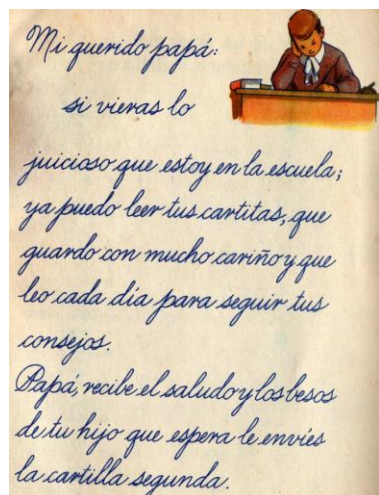 Mi querido papá:
si vieras lo
juicioso que estoy en la escuela;
ya puedo leer tus cartitas, que
guardo con mucho cariño y que
leo cada día para seguir tus
consejos.
Papá, recibe el saludo y los besos
de tu hijo que espera le envíes
la cartilla segunda.